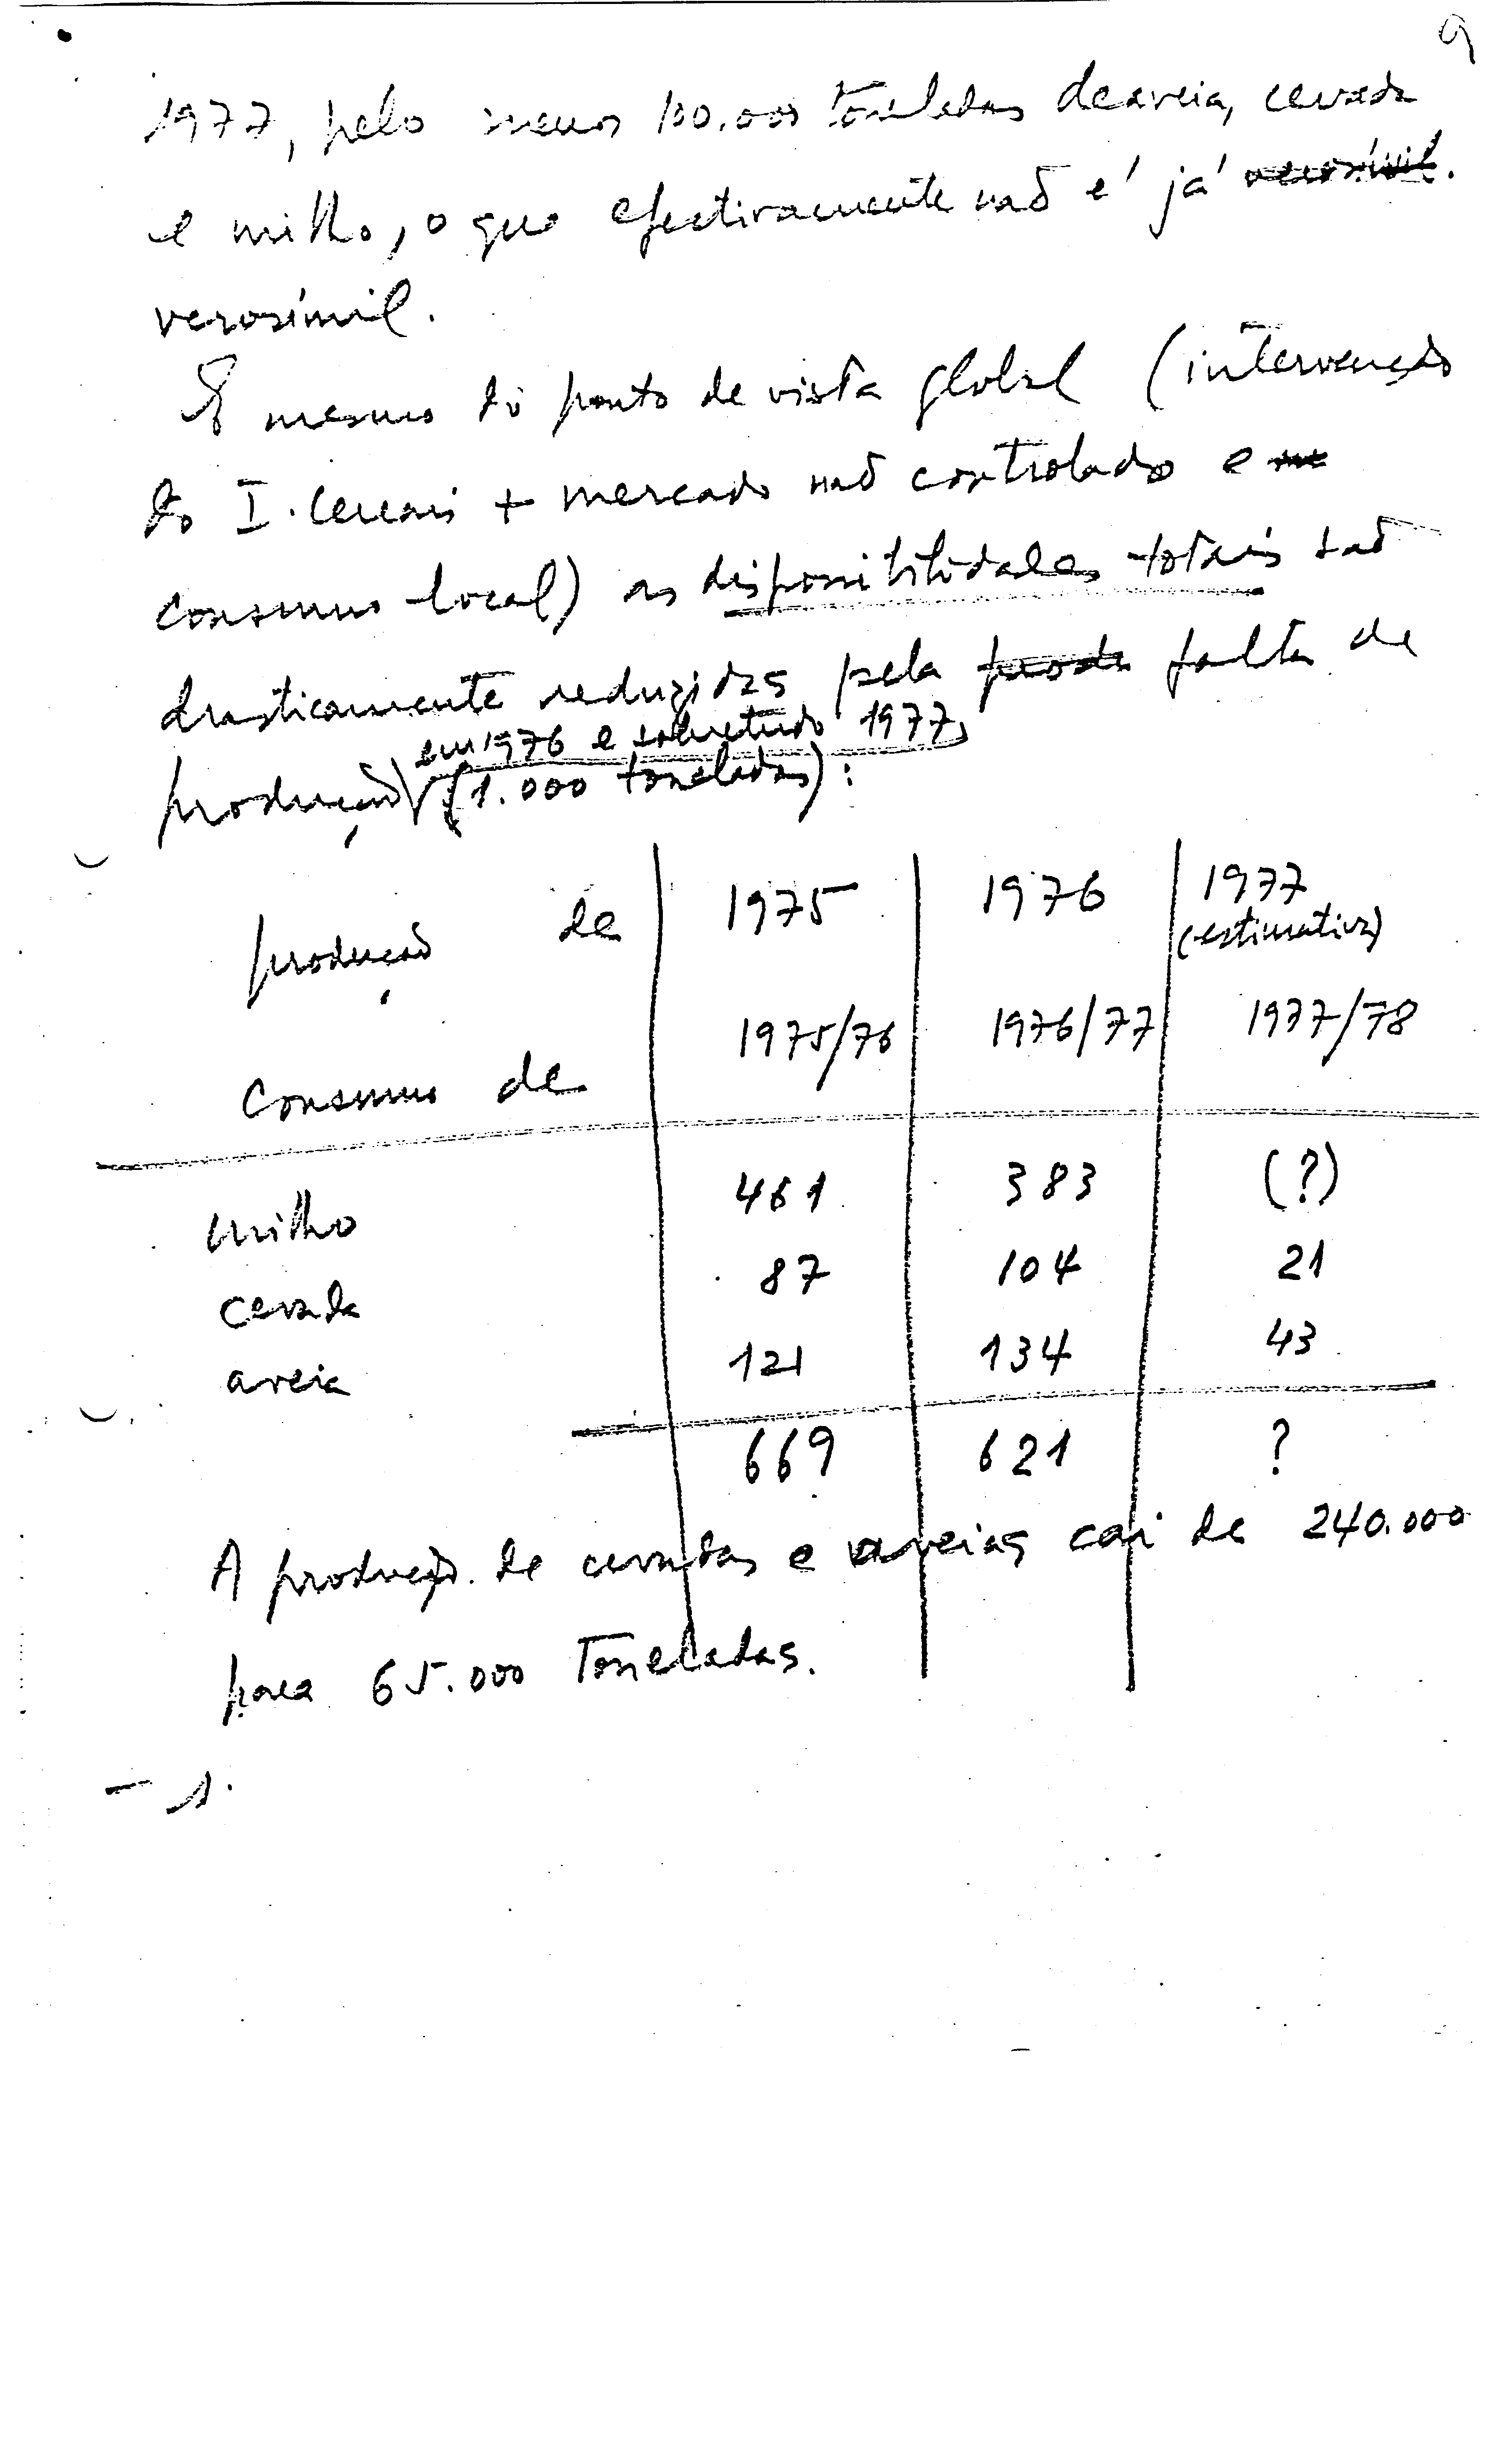 9
1977, pelo menos 100.000 toneladas de aveia, cevada
e milho, o que efectivamente não é já verosímil.
verosímil.
E mesmo do ponto de vista global (intervenção
do I. Cereais + mercado não controlado e
consumo local) as disponibilidades totais são
drasticamente reduzidas pela falta de
em 1976 e sobretudo 1977,
produção (1.000 toneladas):
produção de 1975 1976 1977
(estimativa)
consumo de 1975/76 1976/77 1977/78
milho 461 383 (?)
cevada 87 104 21
aveia 121 134 43
669 621 ?
A produção de cevadas e aveias cai de 240.000
para 65.000 Toneladas.
- 1.